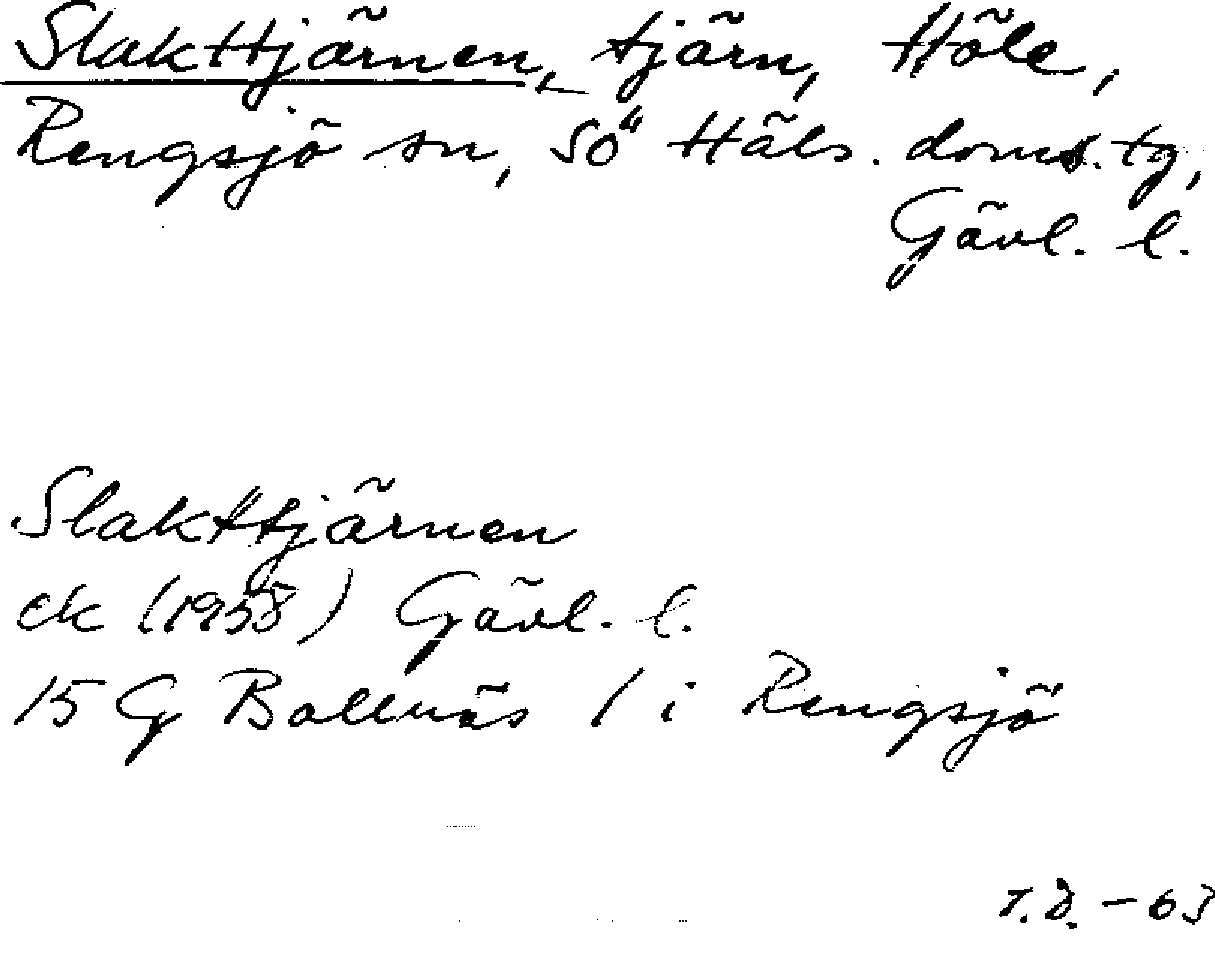 Slakttjärnen, tjärn, Höle,
Rengsjö sn, Sö Häls. doms. tg,
Gävl. l.
Slakttjärnen
ek (1958) Gävl. l.
15 G Bollnäs 1 i Rengsjö
T.D. - 63